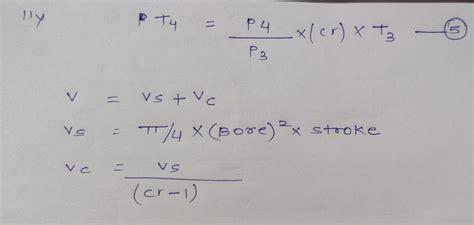 11y PT4 = P4/P3 x (cr) x T3 — 5
V = Vs + Vc
Vs = π/4 x (Bore)² x stroke
Vc = Vs/(cr-1)